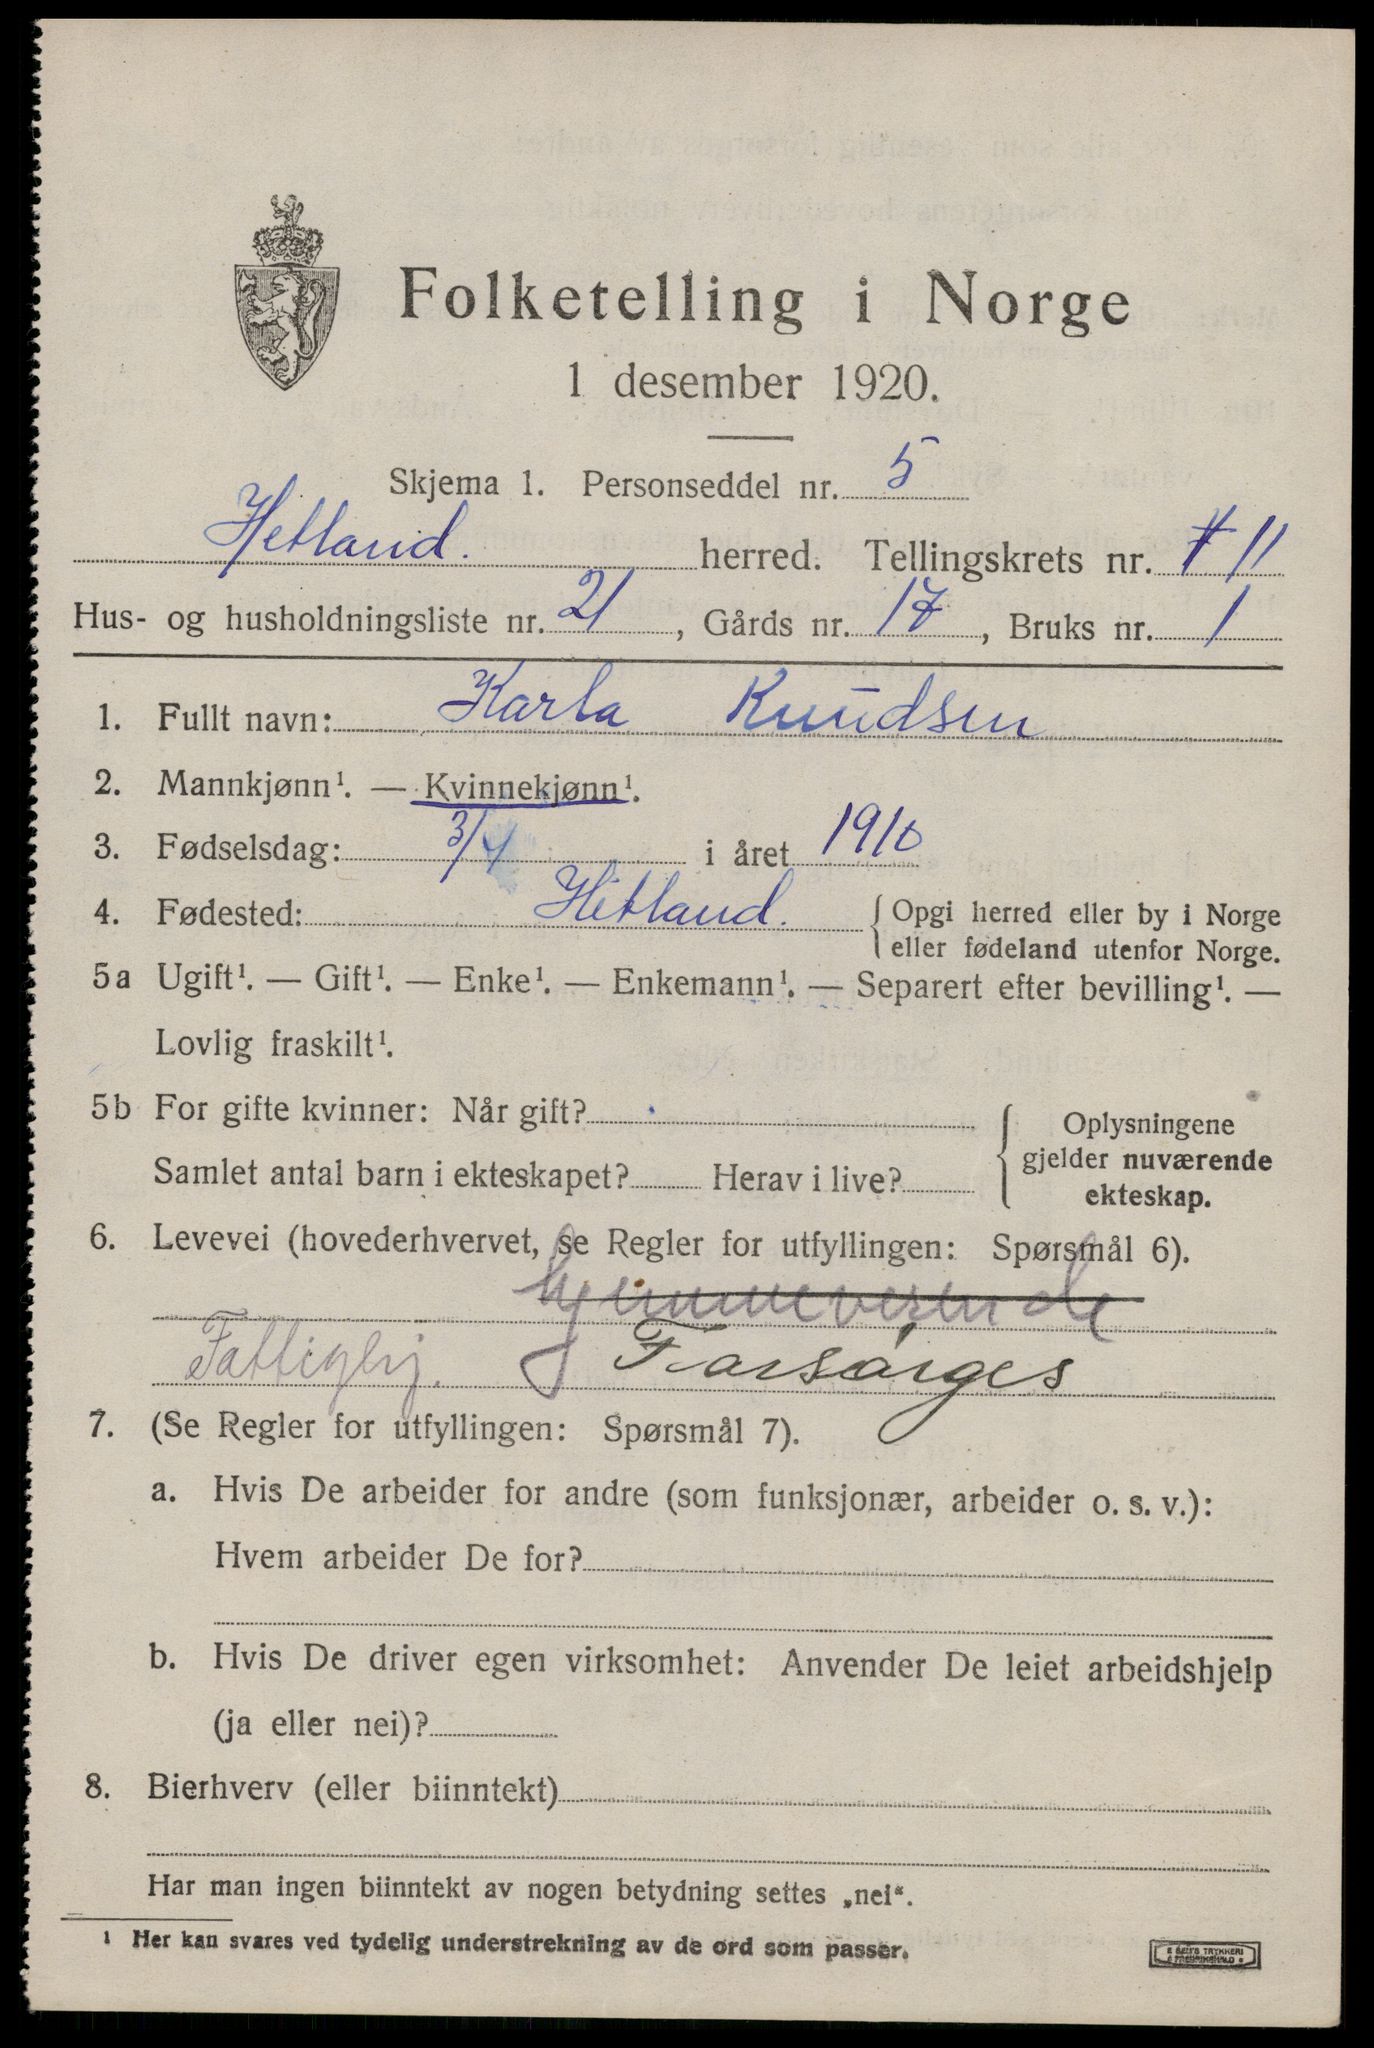 Folketelling i Norge
1 desember 1920.
Skjema 1. Personseddel nr. 5
Hetland. herred. Tellingskrets nr. 11
Hus- og husholdningsliste nr. 21, Gårds nr. 17, Bruks nr. 1
1. Fullt navn: Karla Knudsen
2. Mannkjønn¹. — Kvinnekjønn¹.
3. Fødselsdag: 3/4 i året 1910
4. Fødested: Hetland. Opgi herred eller by i Norge
eller fødeland utenfor Norge.
5a Ugift¹. — Gift¹. — Enke¹. — Enkemann¹. — Separert efter bevilling¹. —
Lovlig fraskilt¹.
5b For gifte kvinner: Når gift?
Samlet antal barn i ekteskapet? Herav i live?
Oplysningene
gjelder nuværende
ekteskap.
6. Levevei (hovederhvervet, se Regler for utfyllingen: Spørsmål 6).
hjemmeverende
Fattiglig. Forsørges
7. (Se Regler for utfyllingen: Spørsmål 7).
a. Hvis De arbeider for andre (som funksjonær, arbeider o. s. v.):
Hvem arbeider De for?
b. Hvis De driver egen virksomhet: Anvender De leiet arbeidshjelp
(ja eller nei)?
8. Bierhverv (eller biinntekt)
Har man ingen biinntekt av nogen betydning settes „nei“.
¹ Her kan svares ved tydelig understrekning av de ord som passer.